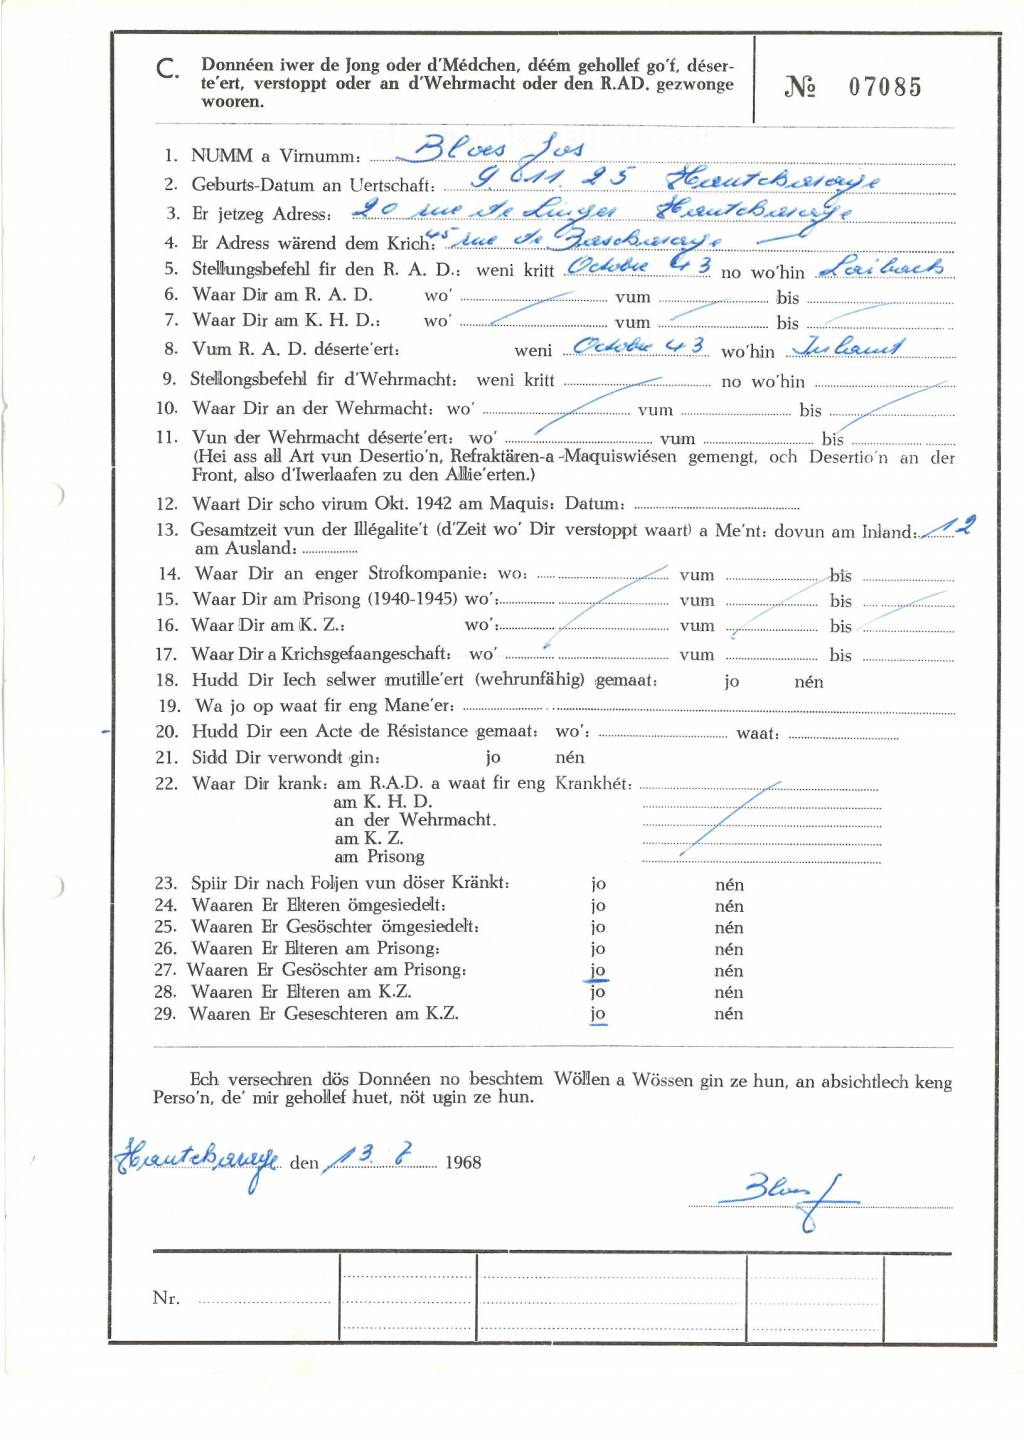 C. Donnéen iwer de Jong oder d'Médchen, déém gehollef go'f, déser-
te'ert, verstoppt oder an d'Wehrmacht oder den R.AD. gezwonge
wooren.
№ 07085
1. NUMM a Virnumm: Bloes Jos
2. Geburts-Datum an Uertschaft: 9 11. 25 Hautcharage
3. Er jetzeg Adress: 20 rue de Linger Hautcharage
4. Er Adress wärend dem Krich: 45 rue de Bascharage
5. Stellungsbefehl fir den R. A. D.: weni kritt Octobre 43 no wo'hin Laibach
6. Waar Dir am R. A. D. wo' vum bis
7. Waar Dir am K. H. D.: wo' vum bis
8. Vum R. A. D. déserte'ert: weni Octobre 43 wo'hin Inland
9. Stellongsbefehl fir d'Wehrmacht: weni kritt no wo'hin
10. Waar Dir an der Wehrmacht: wo' vum bis
11. Vun der Wehrmacht déserte'ert: wo' vum bis
(Hei ass all Art vun Desertio'n, Refraktären-a-Maquiswiésen gemengt, och Desertio'n an der
Front, also d'Iwerlaafen zu den Allie'erten.)
12. Waart Dir scho virum Okt. 1942 am Maquis: Datum:
13. Gesamtzeit vun der Illégalite't (d'Zeit wo' Dir verstoppt waart) a Me'nt: dovun am Inland: 12
am Ausland:
14. Waar Dir an enger Strofkompanie: wo: vum bis
15. Waar Dir am Prisong (1940-1945) wo': vum bis
16. Waar Dir am K. Z.: wo': vum bis
17. Waar Dir a Krichsgefaangeschaft: wo' vum bis
18. Hudd Dir Iech selwer mutille'ert (wehrunfähig) gemaat: jo nén
19. Wa jo op waat fir eng Mane'er:
20. Hudd Dir een Acte de Résistance gemaat: wo': waat:
21. Sidd Dir verwondt gin: jo nén
22. Waar Dir krank: am R.A.D. a waat fir eng Krankhét:
am K. H. D.
an der Wehrmacht.
am K. Z.
am Prisong
23. Spiir Dir nach Foljen vun döser Kränkt: jo nén
24. Waaren Er Elteren ömgesiedelt: jo nén
25. Waaren Er Gesöschter ömgesiedelt: jo nén
26. Waaren Er Elteren am Prisong: jo nén
27. Waaren Er Gesöschter am Prisong: jo nén
28. Waaren Er Elteren am K.Z. jo nén
29. Waaren Er Geseschteren am K.Z. jo nén
Ech versechren dös Donnéen no beschtem Wöllen a Wössen gin ze hun, an absichtlech keng
Perso'n, de' mir gehollef huet, nöt ugin ze hun.
Hautcharage den 13. 7 1968
Bloes J
Nr.